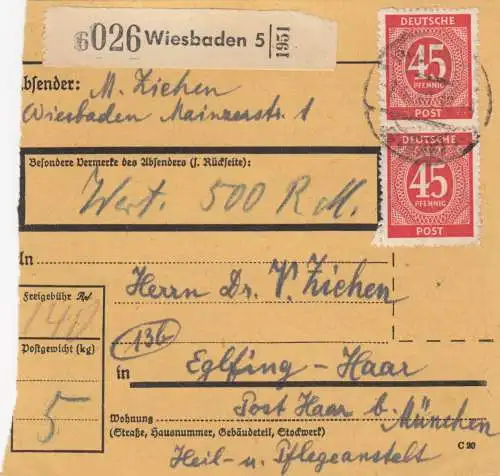 6026 Wiesbaden 5 1951
Absender: M. Ziehen
Wiesbaden Mainzerstr. 1
Besondere Vermerke des Absenders (s. Rückseite):
Wert. 500 R M.
DEUTSCHE
45
PFENNIG
POST
DEUTSCHE
45
PFENNIG
POST
An Herrn Dr. V. Ziehen
Freigebühr RM
(13b)
Postgewicht (kg)
5
in Eglfing - Haar
Post Haar b. München
Wohnung
(Straße, Hausnummer, Gebäudeteil, Stockwerk)
C 20
Heil- u. Pflegeanstalt